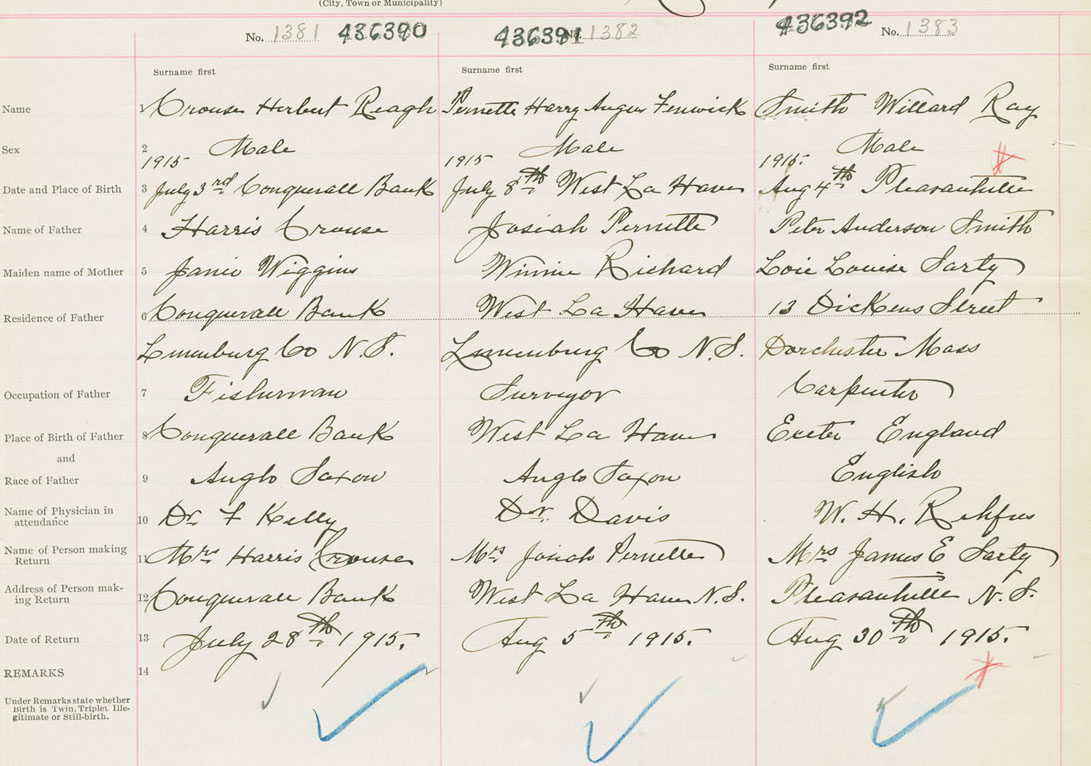 (City, Town or Municipality)
No. 1381 436390 436391 No. 1382 436392 No. 1383
Surname first Surname first Surname first
Name 1 Crouse Herbert Reagh Pernette Harry Angus Fenwick Smith Willard Ray
Sex 2 Male Male Male
1915 1915 1915
Date and Place of Birth 3 July 3rd Conquerall Bank July 8th West La Have Aug 4th Pleasantville
Name of Father 4 Harris Crouse Josiah Pernette Peter Anderson Smith
Maiden name of Mother 5 Janie Wiggins Winnie Richard Loie Louise Sarty
Residence of Father 6 Conquerall Bank West La Have 13 Dickens Street
Lunenburg Co N.S. Lunenburg Co N.S. Dorchester Mass
Occupation of Father 7 Fisherman Surveyor Carpenter
Place of Birth of Father 8 Conquerall Bank West La Have Exeter England
and
Race of Father 9 Anglo Saxon Anglo Saxon English
Name of Physician in
attendance 10 Dr F Kelly Dr. Davis W. H. Rehfus
Name of Person making
Return 11 Mrs Harris Crouse Mrs Josiah Pernette Mrs James E Sarty
Address of Person mak-
ing Return 12 Conquerall Bank West La Have N.S. Pleasantville N.S.
Date of Return 13 July 28th 1915. Aug 5th 1915. Aug 30th 1915.
REMARKS 14
Under Remarks state whether
Birth is Twin, Triplet, Ille-
gitimate or Still-birth.